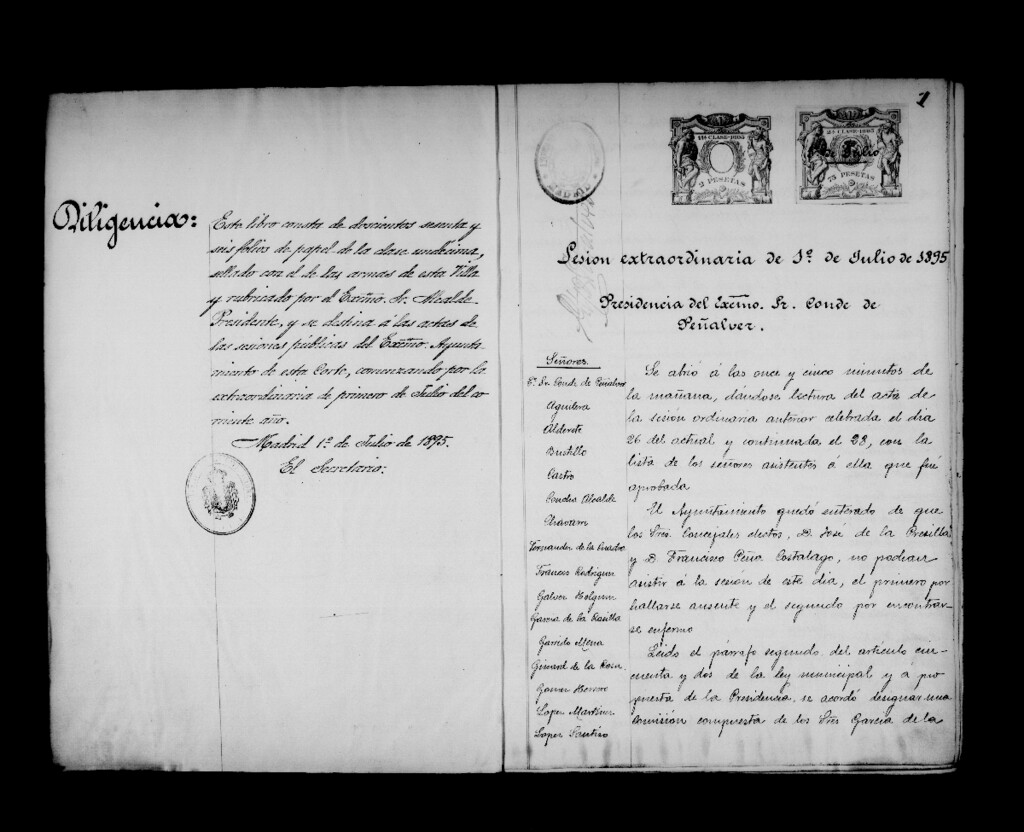 Diligencia:
Este libro consta de doscientos sesenta y
seis folios de papel de la clase undécima,
sellado con el de las armas de esta Villa
y rubricado por el Excmo. Sr. Alcalde
Presidente, y se destina á las actas de
las sesiones públicas del Excmo. Ayunta
miento de esta Corte, comenzando por la
extraordinaria de primero de Julio del co
rriente año.
Madrid 1º de Julio de 1895.
El Secretario:
1
11ª CLASE-1895
2 PESETAS
2ª CLASE-1895
75 PESETAS
MADRID
Sesion extraordinaria de 1º de Julio de 1895
Presidencia del Excmo. Sr. Conde de
Peñalver.
Señores
Eº Sr Conde de Peñalver
Aguilera
Alderete
Bustillo
Castro
Concha Alcalde
Chavarri
Fernandez de la
Frances Rodriguez
Galvez Holguin
Garcia de la Rasilla
Garrido Mena
Ginard de la Rosa
Gomez Herrero
Lopez Martinez
Lopez Santiso
Se abrió á las once y cinco minutos de
la mañana, dándose lectura del acta de
la sesión ordinaria anterior celebrada el dia
26 del actual y continuada el 28, con la
lista de los señores asistentes á ella que fué
aprobada
El Ayuntamiento quedó enterado de que
los Sres Concejales electos, D. José de la Presilla
y D. Francisco Peña Costalago, no podian
asistir á la sesion de este dia, el primero por
hallarse ausente y el segundo por encontrar-
se enfermo
Leido el párrafo segundo del artículo cin-
cuenta y dos de la ley municipal y á pro
puesta de la Presidencia, se acordó designar una
comisión compuesta de los Sres García de la